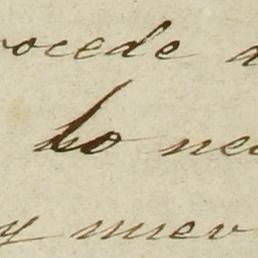 rocede a
lo ne
y nuev